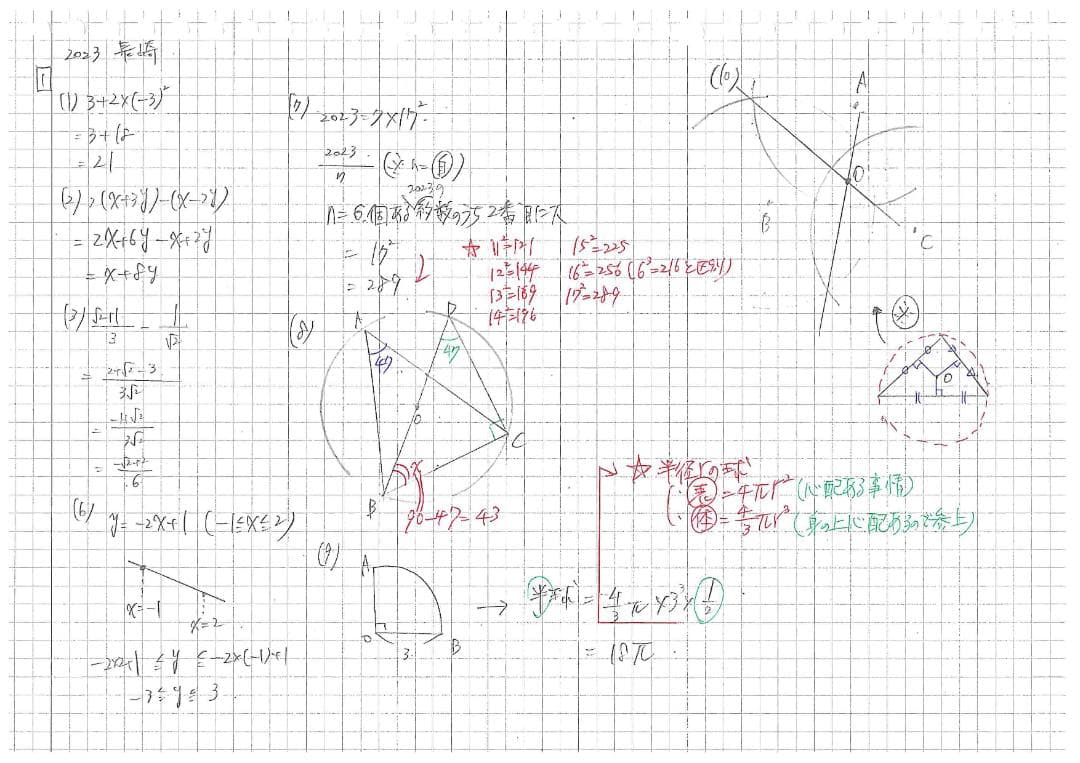 2023 長崎
1
(1) 3+2×(-3)²
= 3+18
= 21
(2) 2(x+3y)-(x-2y)
= 2x+6y-x+2y
= x+8y
(3) (√2+1)/3 - 1/√2
= (2+√2-3)/3√2
= (-1+√2)/3√2
= (-√2+2)/6
(6) y=-2x+1 (-1≦x≦2)
x=-1
x=2
-2×2+1 ≦ y ≦ -2×(-1)+1
-3≦y≦3
(7) 2023=7×17²
2023/n (※ n=自)
2023の
n=6個ある約数のうち2番目に大
= 17²
= 289
☆ 11²=121 15²=225
12²=144 16²=256 (6³=216と区別)
13²=169 17²=289
14²=196
(8)
A
D
47
47
O
C
B
x
90-47=43
(9)
A
O
3
B
→ 半球 = 4/3 π ×3³× 1/2
= 18π
☆ 半径rの球
∵ 表 = 4πr² (心配ある事情)
∵ 体 = 4/3 πr³ (身の上心配あるので参上)
(10)
A
O
B
C
※
O